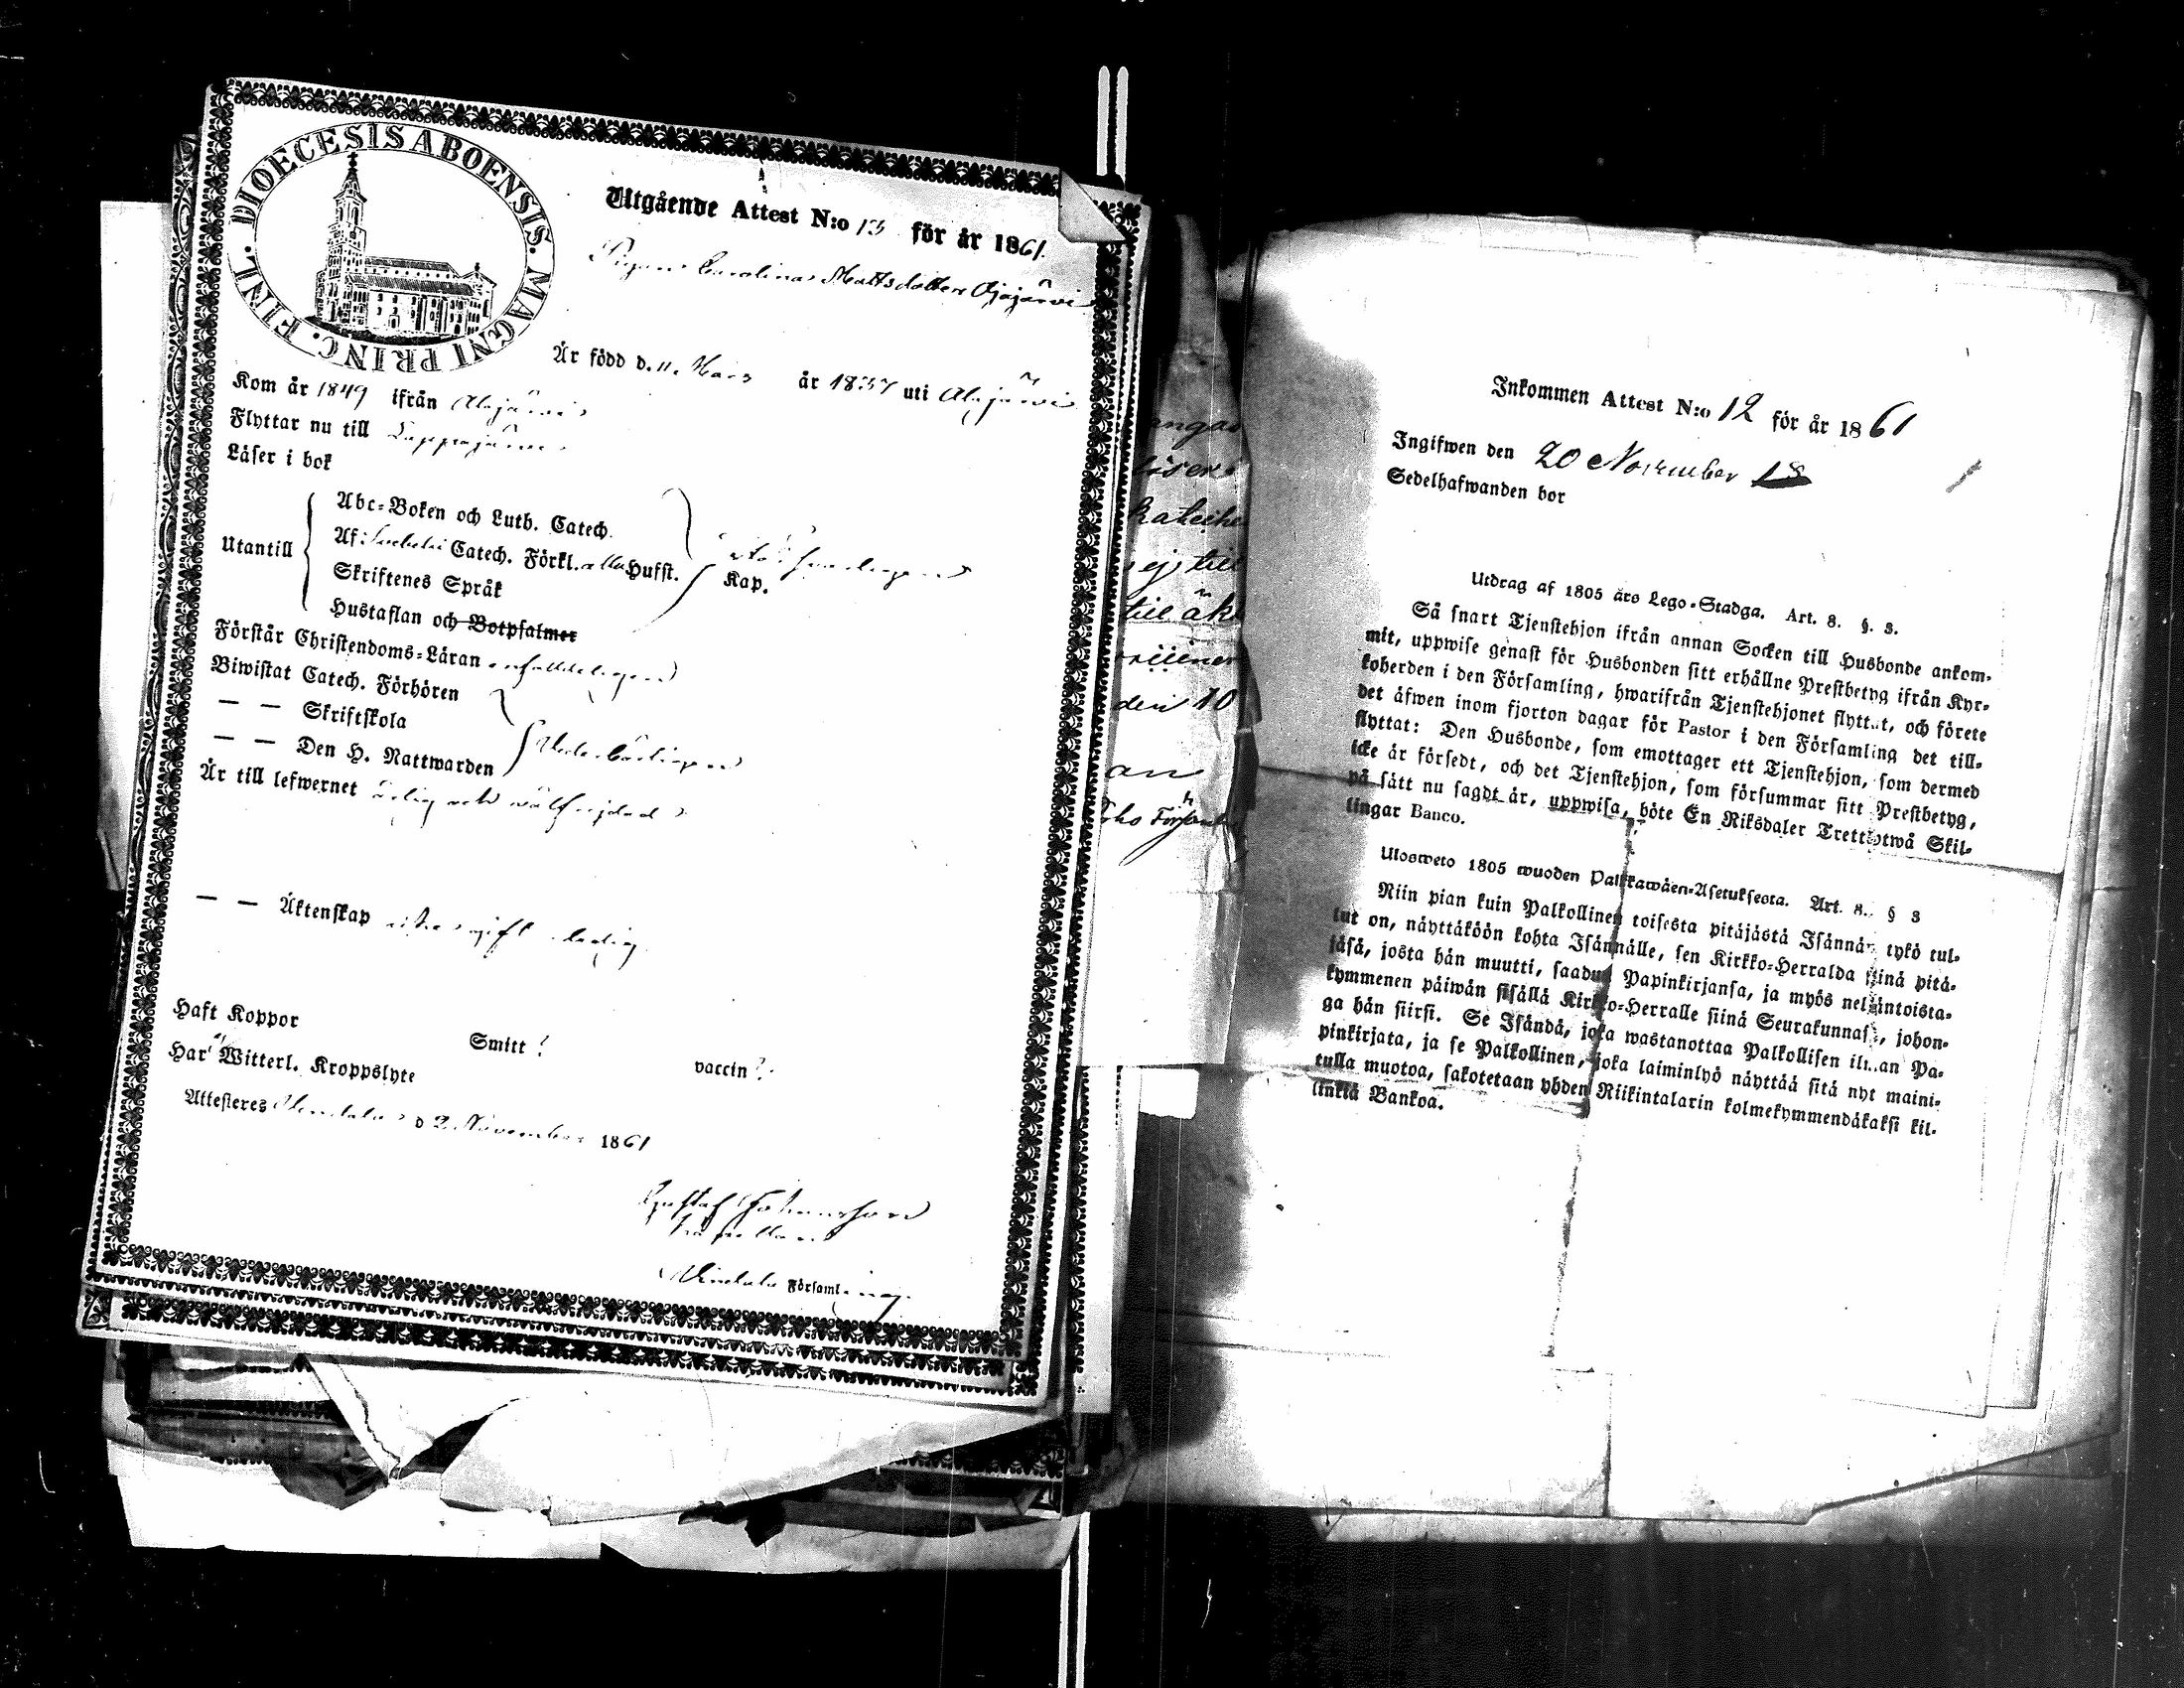 DIOECESIS ABOENSIS. MAGNI PRINC. FINL.
Utgående Attest N:o 13 för år 1861.
Pigan Carolina Mattsdotter Alajärvi
Är född d. 11. Mars år 1837 uti Alajärvi
Kom år 1849 ifrån Alajärvi
Flyttar nu till Lappajärvi
Läser i bok
Utantill
Abc-Boken och Luth. Catech.
Af Svebelii Catech. Förkl. alla Hufst.
Skriftenes Språk Kap.
Hustaflan och Botpsalmer
Förstår Christendoms-Läran
Biwistat Catech. Förhören
— — Skriftskola
— — Den H. Nattwarden
Är till lefwernet ärlig och wälfrejdad
— — Äktenskap ledig
Haft Koppor Smitt? vaccin?
Har ej Witterl. Kroppslyte
Attesteres d 2 November 1861
Gustaf Johansson
Församling.
angar
läser
kateche
ej till
till äk
den 10
an
Församl
Inkommen Attest N:o 12 för år 1861
Ingifwen den 20 November 18
Sedelhafwanden bor
Utdrag af 1805 års Lego-Stadga. Art. 8. §. 3.
Så snart Tjenstehjon ifrån annan Socken till Husbonde ankom-
mit, uppwise genast för Husbonden sitt erhållne Prestbetyg ifrån Kyr-
koherden i den Församling, hwarifrån Tjenstehjonet flyttat, och förete
det äfwen inom fjorton dagar för Pastor i den Församling det till-
flyttat: Den Husbonde, som emottager ett Tjenstehjon, som dermed
icke är försedt, och det Tjenstehjon, som försummar sitt Prestbetyg,
på sätt nu sagdt är, uppwisa, böte En Riksdaler Trettiotwå Skil-
lingar Banco.
Ulosweto 1805 wuoden Palkkawäen-Asetuksesta. Art. 8. § 3
Niin pian kuin Palkollinen toisesta pitäjästä Isännän tykö tul-
lut on, näyttäköön kohta Isännälle, sen Kirkko-Herralda siinä pitä-
jäsä, josta hän muutti, saadun Papinkirjansa, ja myös neljäntoista-
kymmenen päiwän sisällä Kirkko-Herralle siinä Seurakunnasa, johon-
ga hän siirsi. Se Isändä, joka wastanottaa Palkollisen ilman Pa-
pinkirjata, ja se Palkollinen, joka laiminlyö näyttää sitä nyt maini-
tulla muotoa, sakotetaan yhden Riikintalarin kolmekymmendäkaksi kil-
linkiä Bankoa.